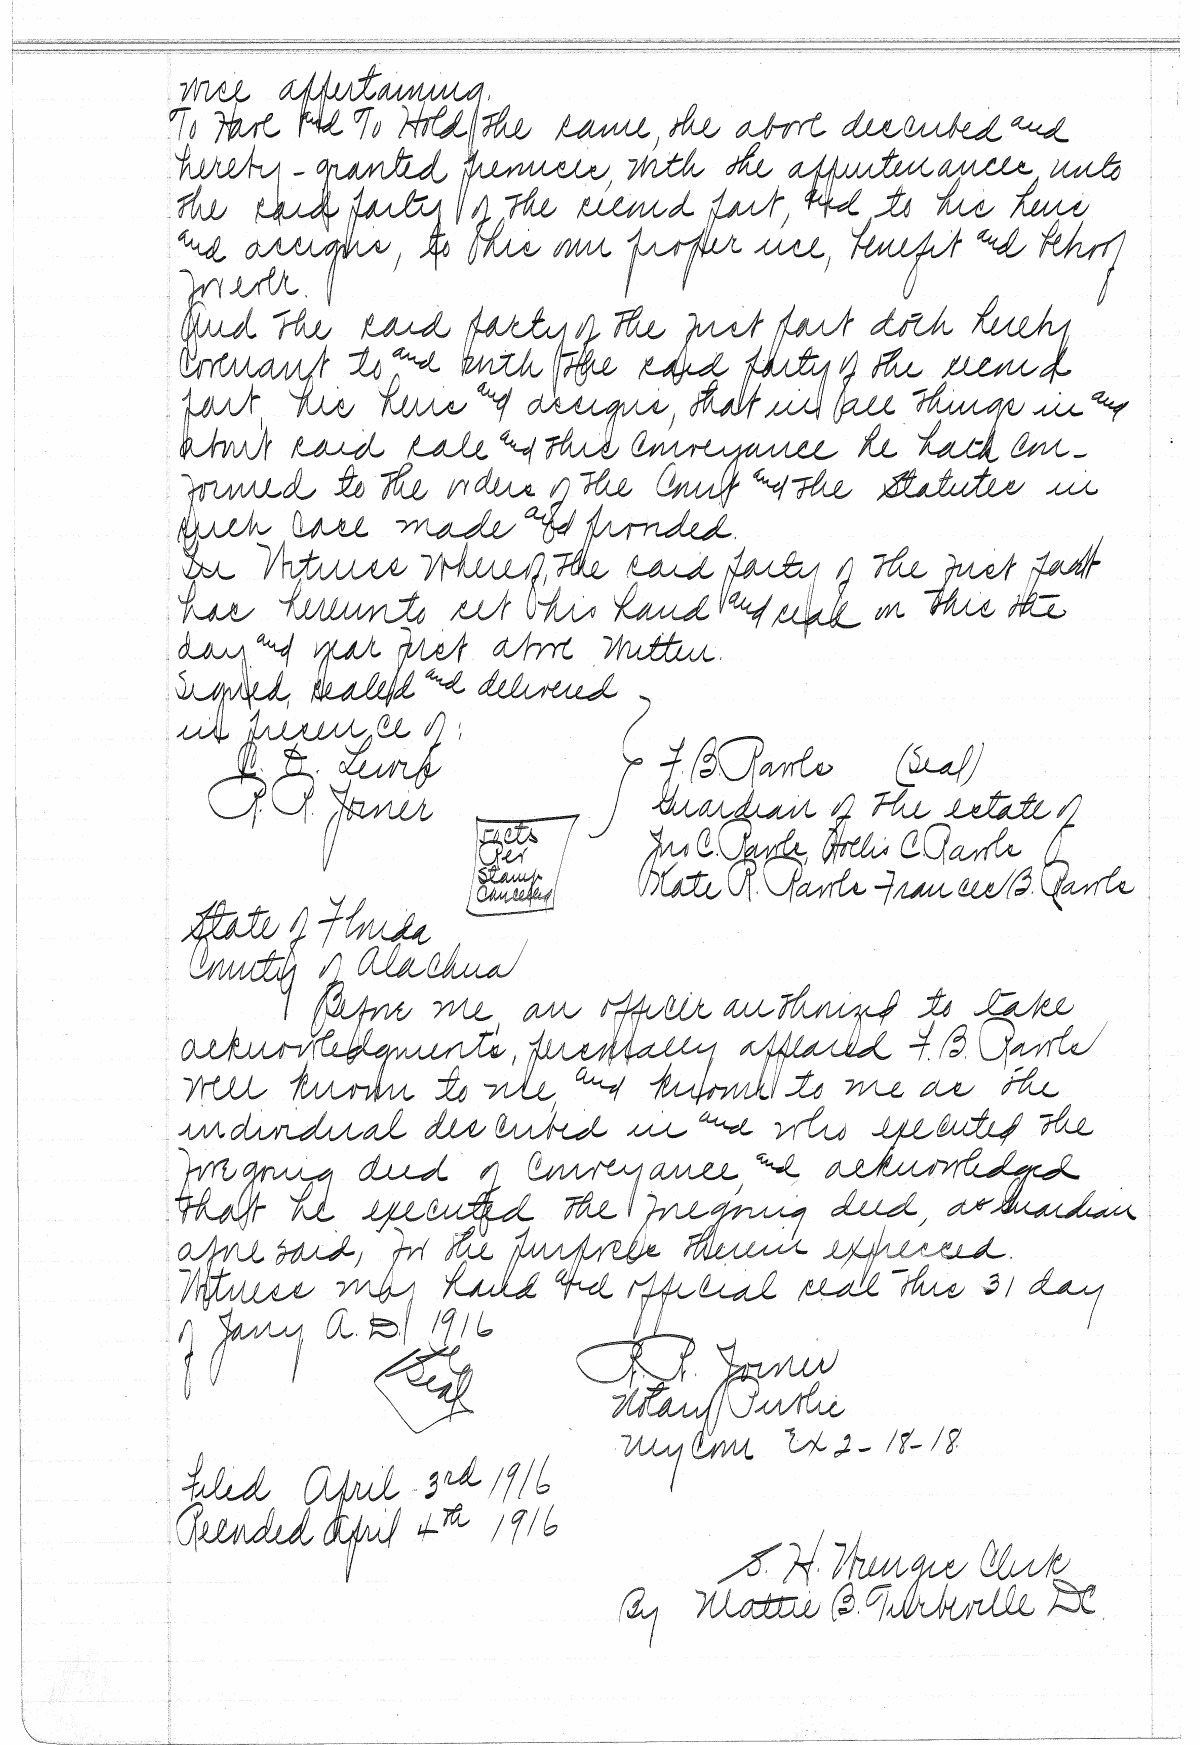 wise appertaining.
To Have and To Hold the same, the above described and
hereby-granted premises, with the appurtenances, unto
the said party of the second part, and to his heirs
and assigns, to his own proper use, benefit and behoof
forever.
And the said party of the first part doth hereby
covenant to and with the said party of the second
part, his heirs and assigns, that in all things in and
about said sale and this conveyance he hath con-
formed to the orders of the Court and the Statutes in
such case made and provided.
In Witness Whereof, the said party of the first part
has hereunto set his hand and seal on this the
day and year first above written.
Signed, sealed and delivered
in presence of:
C. E. Lewis
R. R. Joiner
F. B. Rawls (Seal)
Guardian of the estate of
Jno C. Rawls, Hollis C. Rawls
Kate R. Rawls Frances B. Rawls
Per
Stamp
Cancelled
State of Florida
County of Alachua
Before me, an officer authorized to take
acknowledgments, personally appeared F. B. Rawls
well known to me, and known to me as the
individual described in and who executed the
foregoing deed of conveyance, and acknowledged
that he executed the foregoing deed, as Guardian
aforesaid, for the purposes therein expressed.
Witness my hand and official seal this 31 day
of Jany A.D. 1916
Seal
R. R. Joiner
Notary Public
My Com Ex 2-18-18
Filed April 3rd 1916
Recorded April 4th 1916
S. H. Wienges Clerk
By Mattie B. Turbeville DC